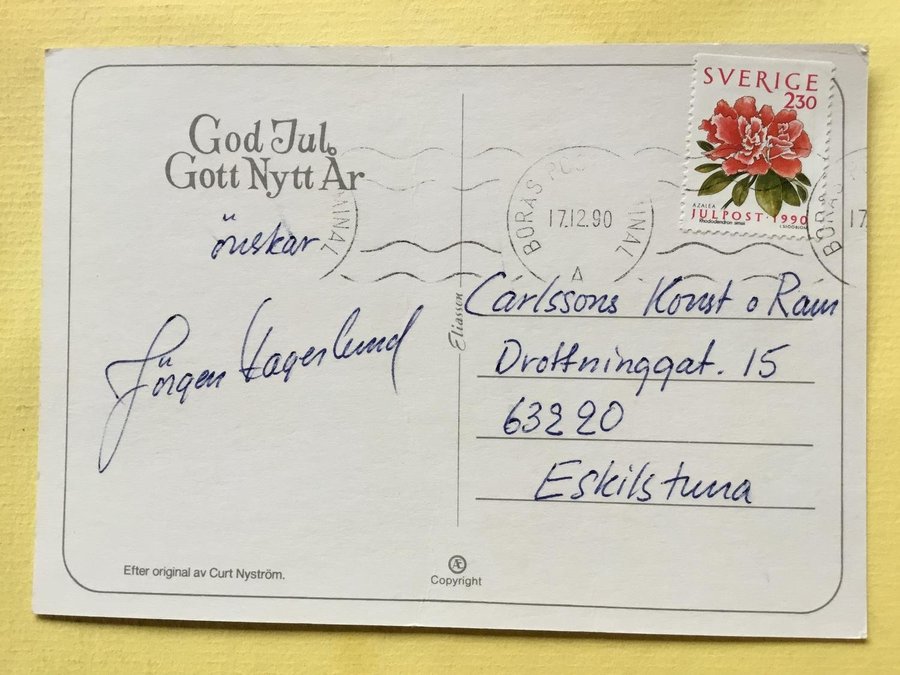 God Jul.
Gott Nytt År
önskar
Jörgen Hagerlund
Efter original av Curt Nyström.
Eliasson
Æ
Copyright
SVERIGE
230
AZALEA
JULPOST · 1990
Rhododendron simsii
BORÅS POS
17.12.90
MINAL
A
BORÅS P
17
MINAL
Carlssons Konst o Ram
Drottninggat. 15
63220
Eskilstuna